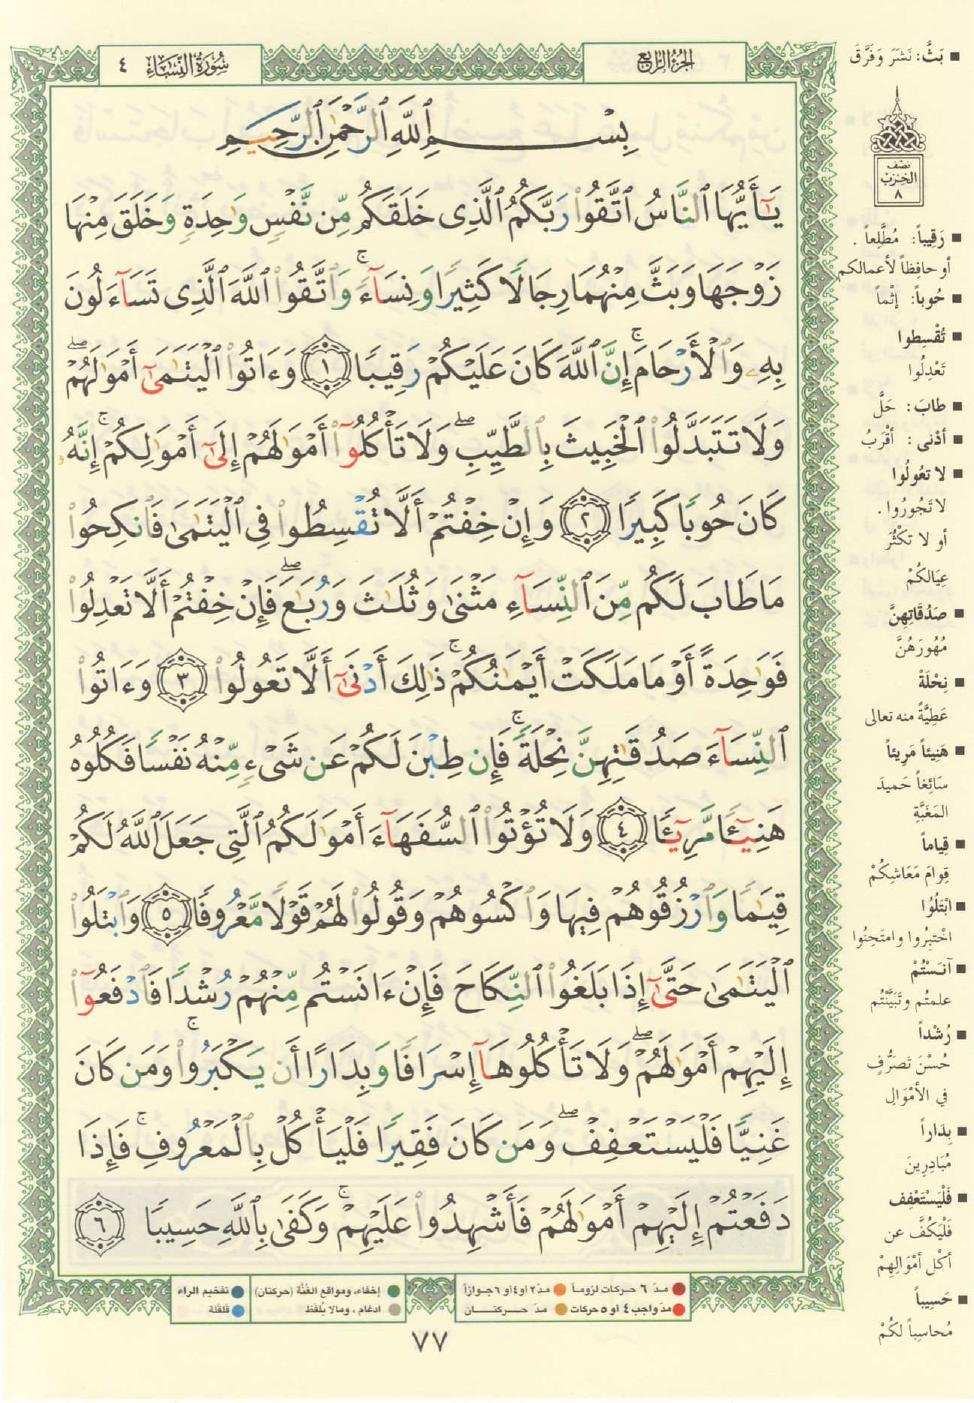 سُورَةُ النِّسَاءِ ٤
الجُزْءُ الرَّابِعُ
بِسْمِ ٱللَّهِ ٱلرَّحْمَٰنِ ٱلرَّحِيمِ
يَٰٓأَيُّهَا ٱلنَّاسُ ٱتَّقُوا۟ رَبَّكُمُ ٱلَّذِى خَلَقَكُم مِّن نَّفْسٍ وَٰحِدَةٍ وَخَلَقَ مِنْهَا
زَوْجَهَا وَبَثَّ مِنْهُمَا رِجَالًا كَثِيرًا وَنِسَآءً ۚ وَٱتَّقُوا۟ ٱللَّهَ ٱلَّذِى تَسَآءَلُونَ
بِهِۦ وَٱلْأَرْحَامَ ۚ إِنَّ ٱللَّهَ كَانَ عَلَيْكُمْ رَقِيبًا ١ وَءَاتُوا۟ ٱلْيَتَٰمَىٰٓ أَمْوَٰلَهُمْ ۖ
وَلَا تَتَبَدَّلُوا۟ ٱلْخَبِيثَ بِٱلطَّيِّبِ ۖ وَلَا تَأْكُلُوٓا۟ أَمْوَٰلَهُمْ إِلَىٰٓ أَمْوَٰلِكُمْ ۚ إِنَّهُۥ
كَانَ حُوبًا كَبِيرًا ٢ وَإِنْ خِفْتُمْ أَلَّا تُقْسِطُوا۟ فِى ٱلْيَتَٰمَىٰ فَٱنكِحُوا۟
مَا طَابَ لَكُم مِّنَ ٱلنِّسَآءِ مَثْنَىٰ وَثُلَٰثَ وَرُبَٰعَ ۖ فَإِنْ خِفْتُمْ أَلَّا تَعْدِلُوا۟
فَوَٰحِدَةً أَوْ مَا مَلَكَتْ أَيْمَٰنُكُمْ ۚ ذَٰلِكَ أَدْنَىٰٓ أَلَّا تَعُولُوا۟ ٣ وَءَاتُوا۟
ٱلنِّسَآءَ صَدُقَٰتِهِنَّ نِحْلَةً ۚ فَإِن طِبْنَ لَكُمْ عَن شَىْءٍ مِّنْهُ نَفْسًا فَكُلُوهُ
هَنِيٓـًٔا مَّرِيٓـًٔا ٤ وَلَا تُؤْتُوا۟ ٱلسُّفَهَآءَ أَمْوَٰلَكُمُ ٱلَّتِى جَعَلَ ٱللَّهُ لَكُمْ
قِيَٰمًا وَٱرْزُقُوهُمْ فِيهَا وَٱكْسُوهُمْ وَقُولُوا۟ لَهُمْ قَوْلًا مَّعْرُوفًا ٥ وَٱبْتَلُوا۟
ٱلْيَتَٰمَىٰ حَتَّىٰٓ إِذَا بَلَغُوا۟ ٱلنِّكَاحَ فَإِنْ ءَانَسْتُم مِّنْهُمْ رُشْدًا فَٱدْفَعُوٓا۟
إِلَيْهِمْ أَمْوَٰلَهُمْ ۖ وَلَا تَأْكُلُوهَآ إِسْرَافًا وَبِدَارًا أَن يَكْبَرُوا۟ ۚ وَمَن كَانَ
غَنِيًّا فَلْيَسْتَعْفِفْ ۖ وَمَن كَانَ فَقِيرًا فَلْيَأْكُلْ بِٱلْمَعْرُوفِ ۚ فَإِذَا
دَفَعْتُمْ إِلَيْهِمْ أَمْوَٰلَهُمْ فَأَشْهِدُوا۟ عَلَيْهِمْ ۚ وَكَفَىٰ بِٱللَّهِ حَسِيبًا ٦
بَثَّ: نَشَرَ وَفَرَّقَ
نصف
الحِزْب
٨
رَقِيباً: مُطَّلِعاً .
أو حافِظاً لأعمالكم
حُوباً: إثْماً
تُقْسِطوا
تَعْدِلُوا
طابَ: حَلَّ
أدْنى: أقْرَبُ
لا تعُولُوا
لا تَجُورُوا .
أو لا تَكْثُرَ
عِيَالكُمْ
صَدُقَاتِهِنَّ
مُهُورَهُنَّ
نِحْلَةً
عَطِيَّةً منه تعالى
هَنِيئاً مَرِيئاً
سَائِغاً حَميدَ
المَغَبَّةِ
قِياماً
قِوامَ مَعَاشِكُمْ
ابْتَلُوا
اختبِرُوا وامتَحِنُوا
آنَسْتُمْ
علمتُم وتَبَيَّنْتُم
رُشْداً
حُسْنَ تَصَرُّفٍ
في الأمْوَالِ
بِدَاراً
مُبَادِرِينَ
فَلْيَسْتَعْفِف
فَلْيَكُفَّ عن
أكْلِ أمْوَالِهِمْ
حَسِيباً
مُحاسِباً لكُمْ
مدّ ٦ حركات لزوماً مدّ ٢ او ٤ او ٦ جوازاً
مدّ واجب ٤ او ٥ حركات مدّ حركتان
إخفاء، ومواقع الغُنَّة (حركتان) تفخيم الراء
ادغام ، ومالا يُلفظ قلقلة
٧٧